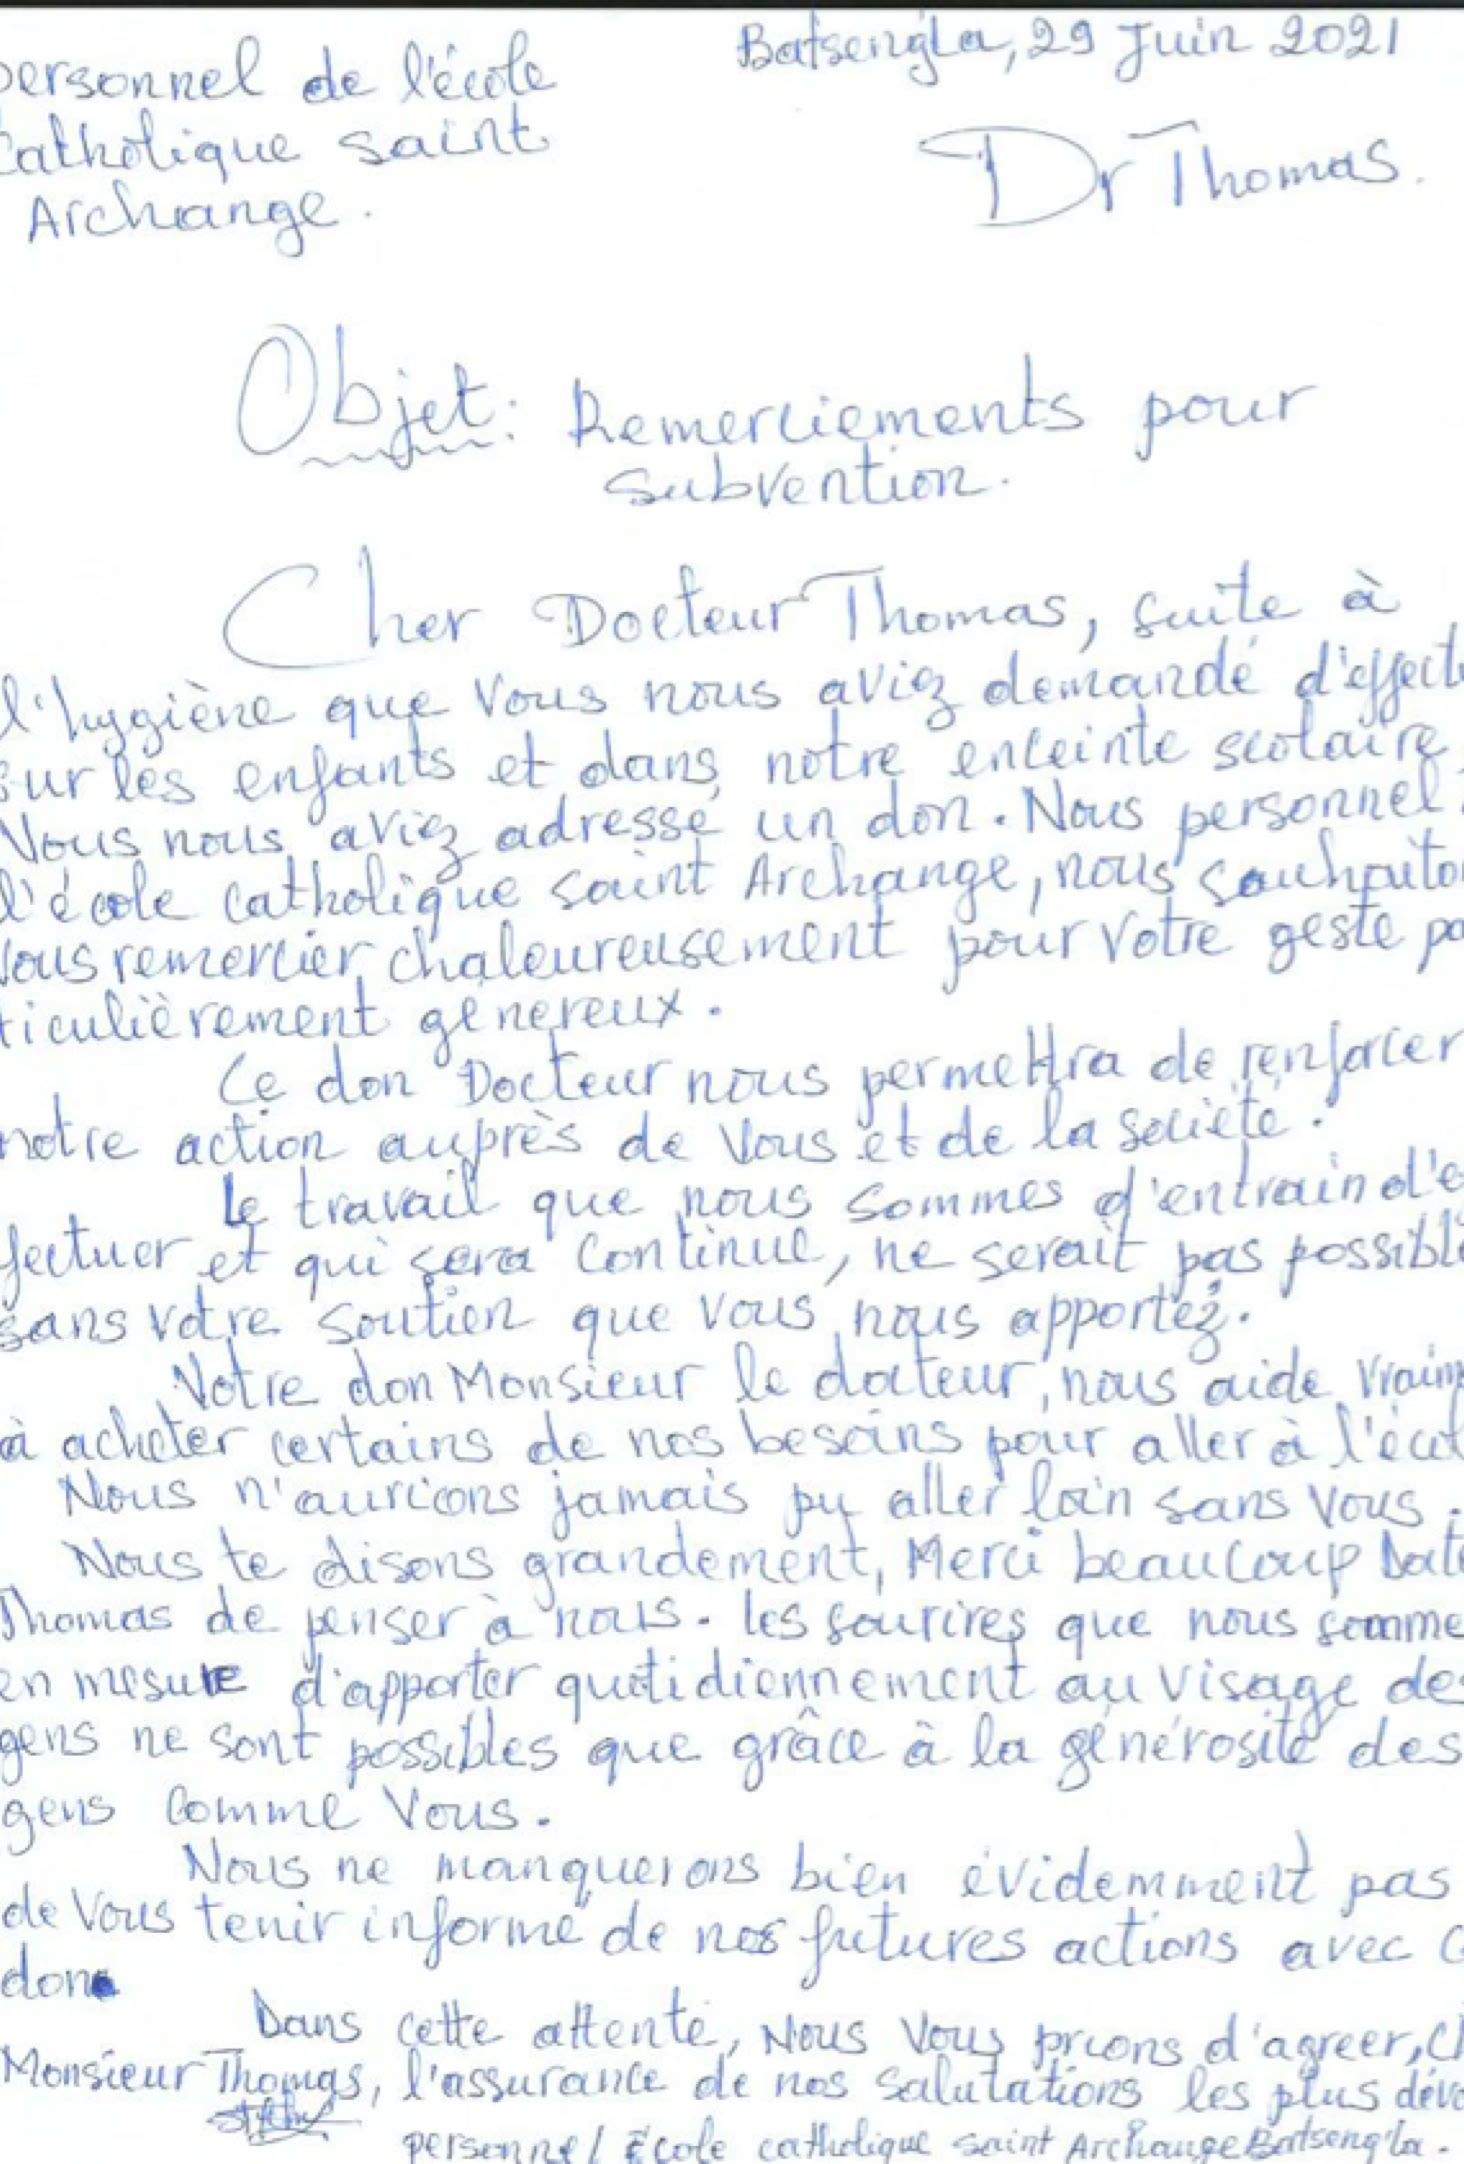 personnel de l'école
Batsengla, 29 Juin 2021
catholique saint
Archange.
Dr Thomas.
Objet: Remerciements pour
subvention.
Cher Docteur Thomas, suite à
l'hygiène que Vous nous aviez demandé d'effect
sur les enfants et dans notre enceinte scolaire,
Vous nous aviez adressé un don. Nous personnel
l'école catholique saint Archange, nous souhaito
Vous remercier chaleureusement pour votre geste pa
ticulièrement génereux.
Ce don Docteur nous permettra de renforcer
notre action auprès de Vous et de la société.
Le travail que nous sommes d'entrain d'e
fectuer et qui sera continue, ne serait pas possible
sans votre soutien que vous nous apportez.
Votre don Monsieur le docteur, nous aide vraim
à acheter certains de nos besoins pour aller à l'écol
Nous n'aurions jamais pu aller loin sans Vous.
Nous te disons grandement, Merci beaucoup Docte
Thomas de penser à nous. les sourires que nous somme
en mesure d'apporter quotidiennement au visage des
gens ne sont possibles que grâce à la générosité des
gens comme Vous.
Nous ne manquerons bien évidemment pas
de Vous tenir informé de nos futures actions avec c
don.
Dans cette attente, Nous Vous prions d'agreer, ch
Monsieur Thomas, l'assurance de nos salutations les plus dévo
personnel École catholique saint Archange Batseng'la.